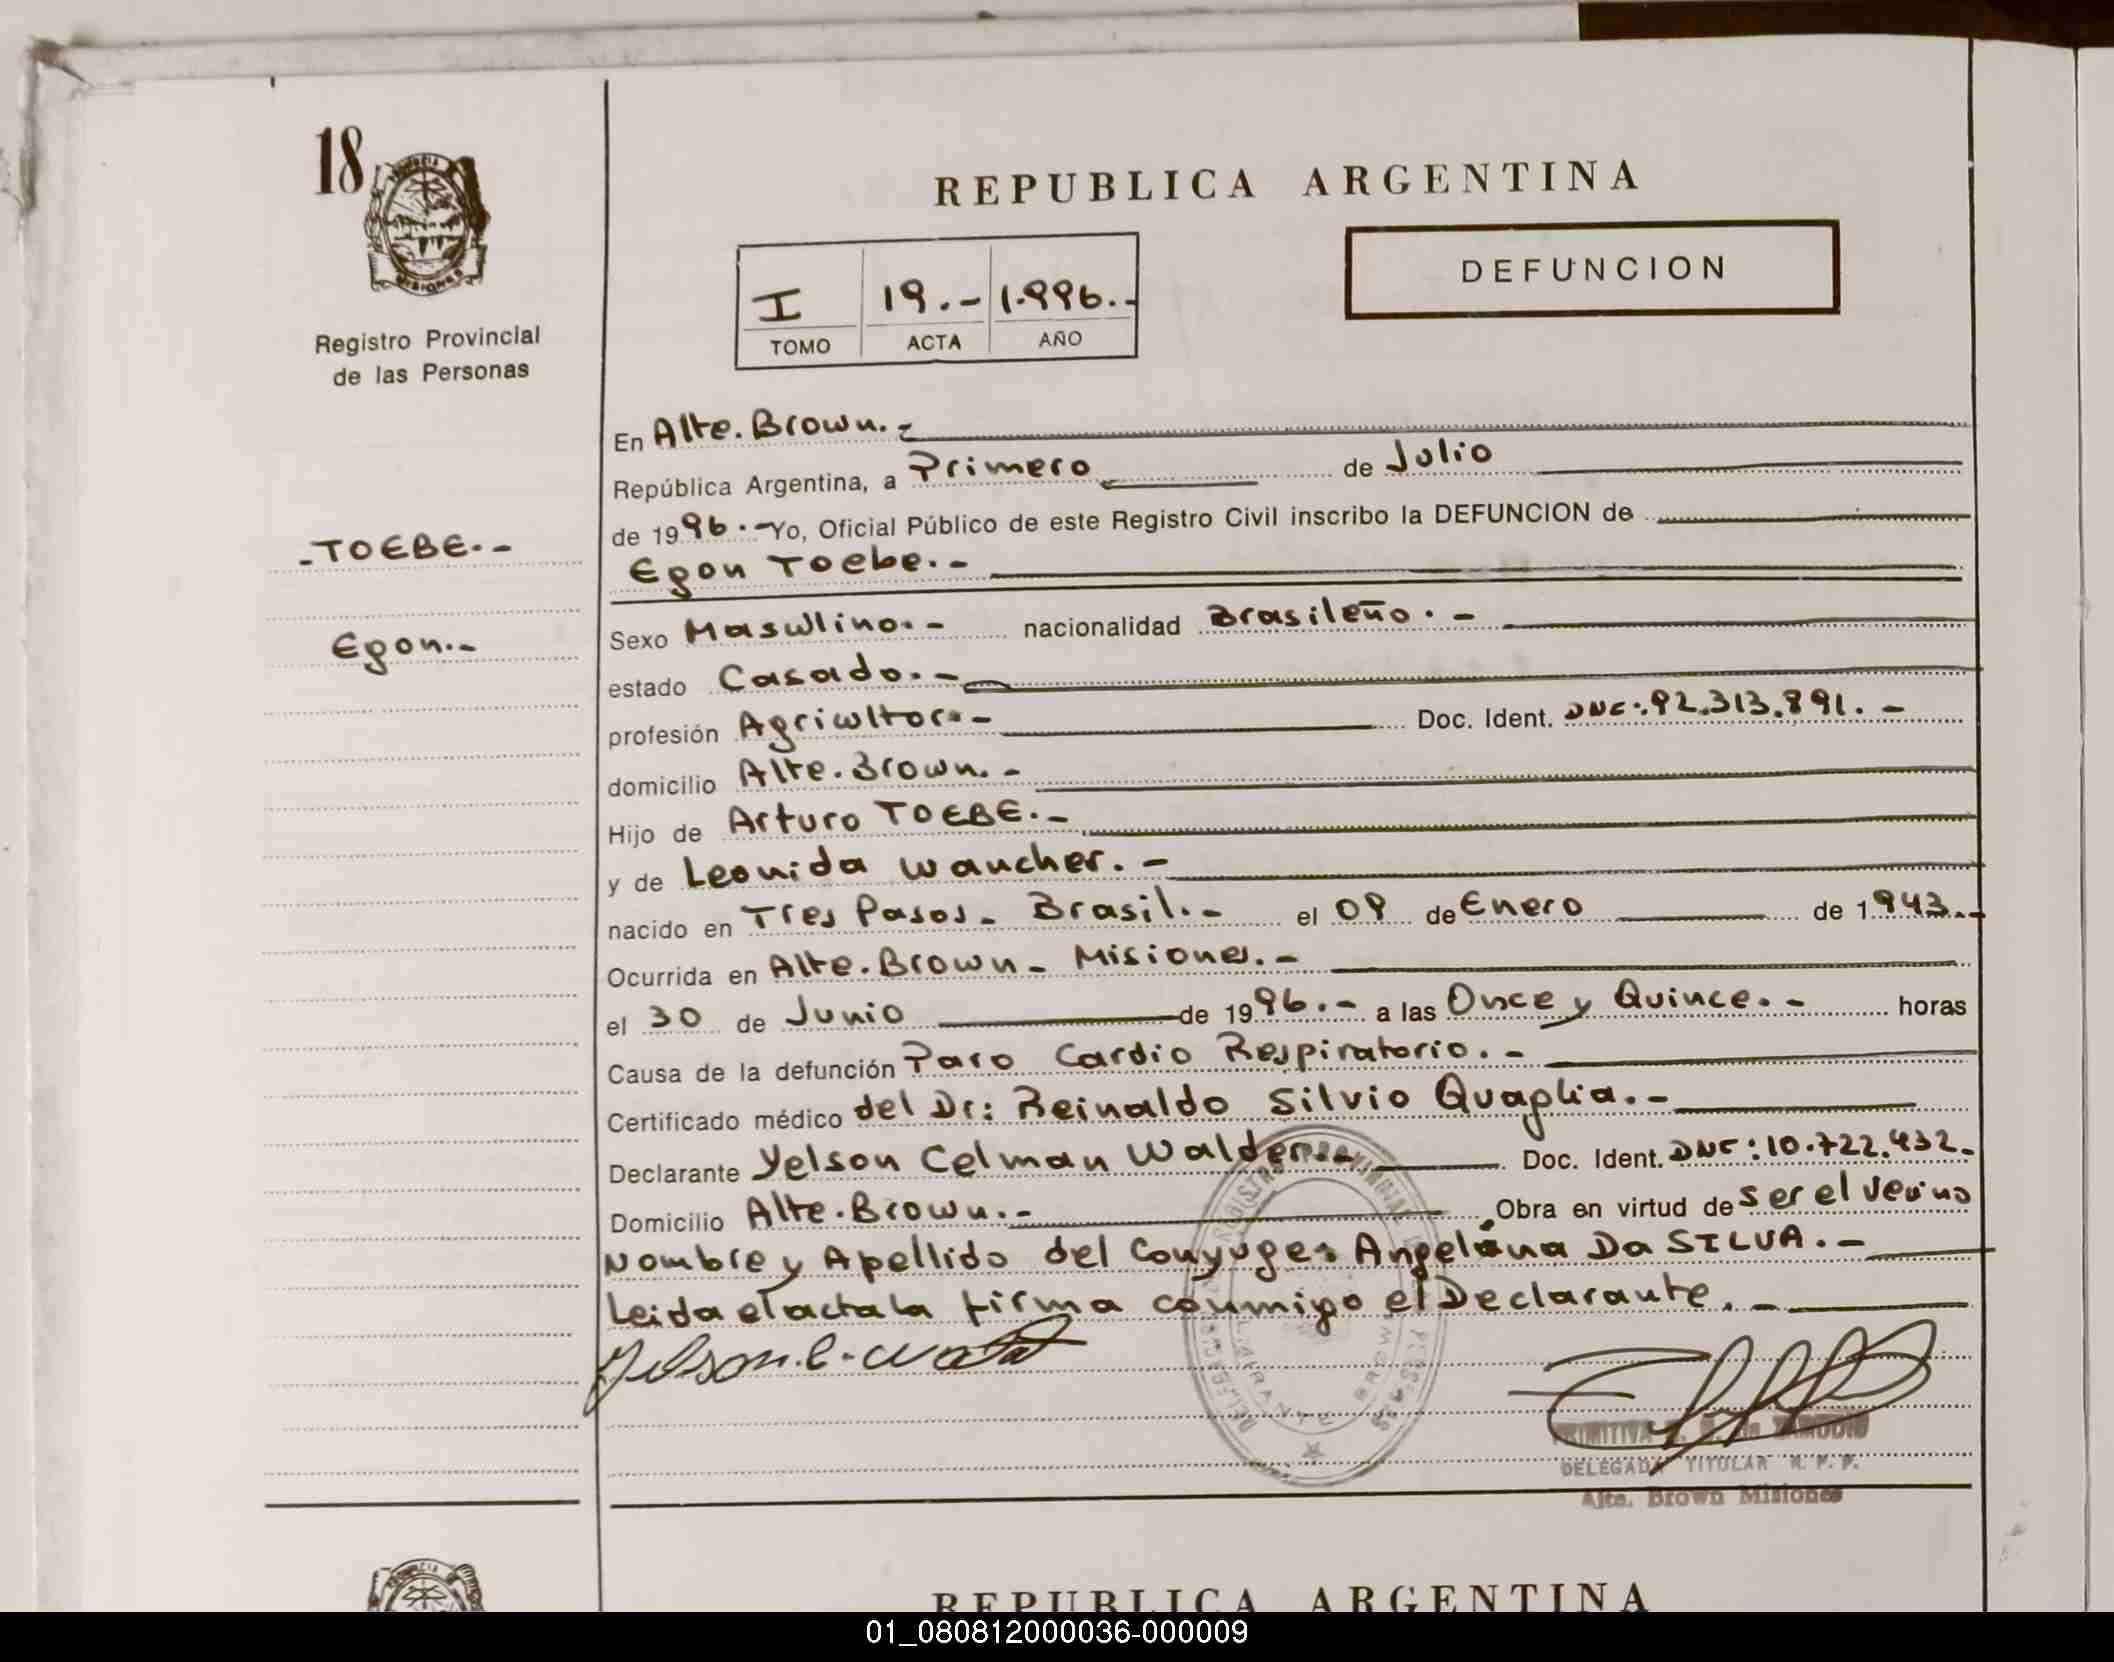 18
PROVINCIA
MISIONES
Registro Provincial
de las Personas
-TOEBE.-
Egon.-
REPUBLICA ARGENTINA
I 19.- 1.996.-
TOMO ACTA AÑO
DEFUNCION
En Alte. Brown.-
República Argentina, a Primero de Julio
de 1996.- Yo, Oficial Público de este Registro Civil inscribo la DEFUNCION de
Egon Toebe.-
Sexo Masculino.- nacionalidad Brasileño.-
estado Casado.-
profesión Agricultor.- Doc. Ident. DNE:.92.313.891.-
domicilio Alte. Brown.-
Hijo de Arturo TOEBE.-
y de Leonida Waucher.-
nacido en Tres Pasos- Brasil.- el 09 de Enero de 1943.-
Ocurrida en Alte. Brown- Misiones.-
el 30 de Junio de 1996.- a las Once y Quince.- horas
Causa de la defunción Paro Cardio Respiratorio.-
Certificado médico del Dr: Reinaldo Silvio Quaglia.-
Declarante Yelson Celman Walder.- Doc. Ident. DNE: 10.722.432.-
Domicilio Alte. Brown.- Obra en virtud de ser el vecino
Nombre y Apellido del Conyuge: Angelina Da SILVA.-
Leida el acta la firma conmigo el Declarante.-
Yelson. C.
REGISTRO PROVINCIAL DE LAS PERSONAS
ALMIRANTE BROWN
PRIMITIVA de ZAMUDIO
DELEGADA TITULAR R. P. P.
Alte. Brown Misiones
REPUBLICA ARGENTINA
01_080812000036-000009